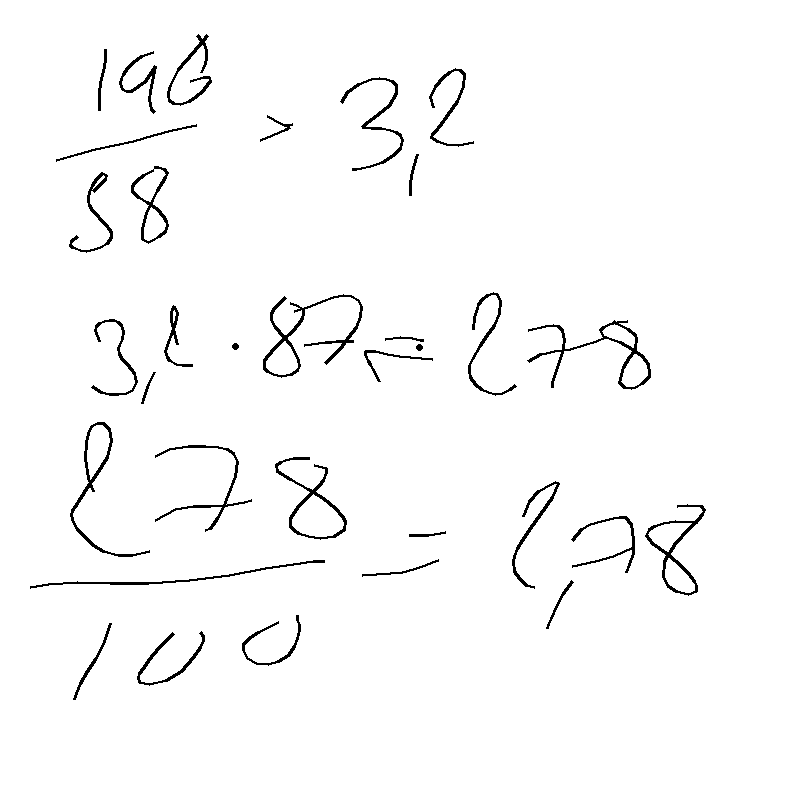 196
58 > 3,2
3,2 · 87 = 278
278
100 = 2,78